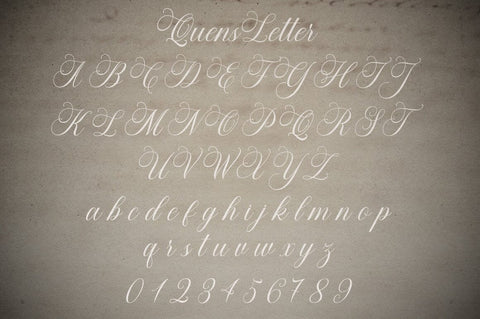 Quens Letter
A B C D E F G H I J
K L M N O P Q R S T
U V W X Y Z
a b c d e f g h i j k l m n o p
q r s t u v w x y z
0 1 2 3 4 5 6 7 8 9